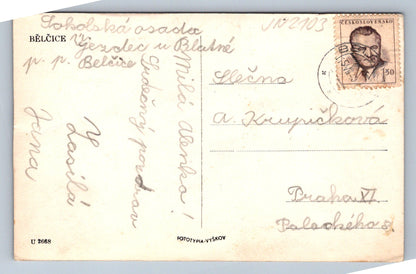 Sokolská osada
Újezdec u Blatné
p. p. Bělčice
BĚLČICE
Milá Alenko!
Srdečný pozdrav
Zasílá
Jana
U 2668
FOTOTYPIA-VYŠKOV
ČESKOSLOVENSKO
1.50
Slečna
A. Krupičková
Praha XI
Palackého